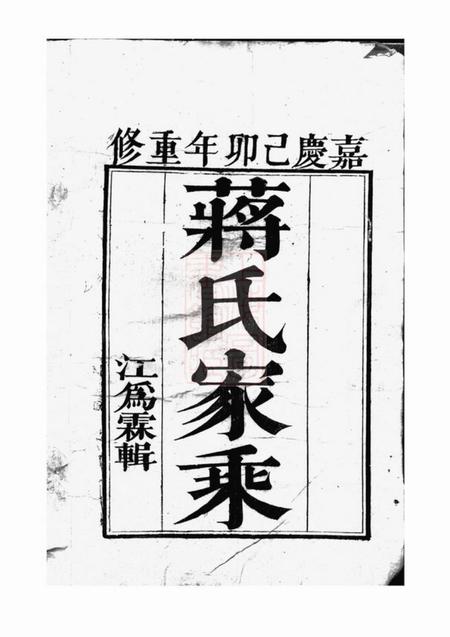 嘉慶己卯年重修
蔣氏家乘
江爲霖輯